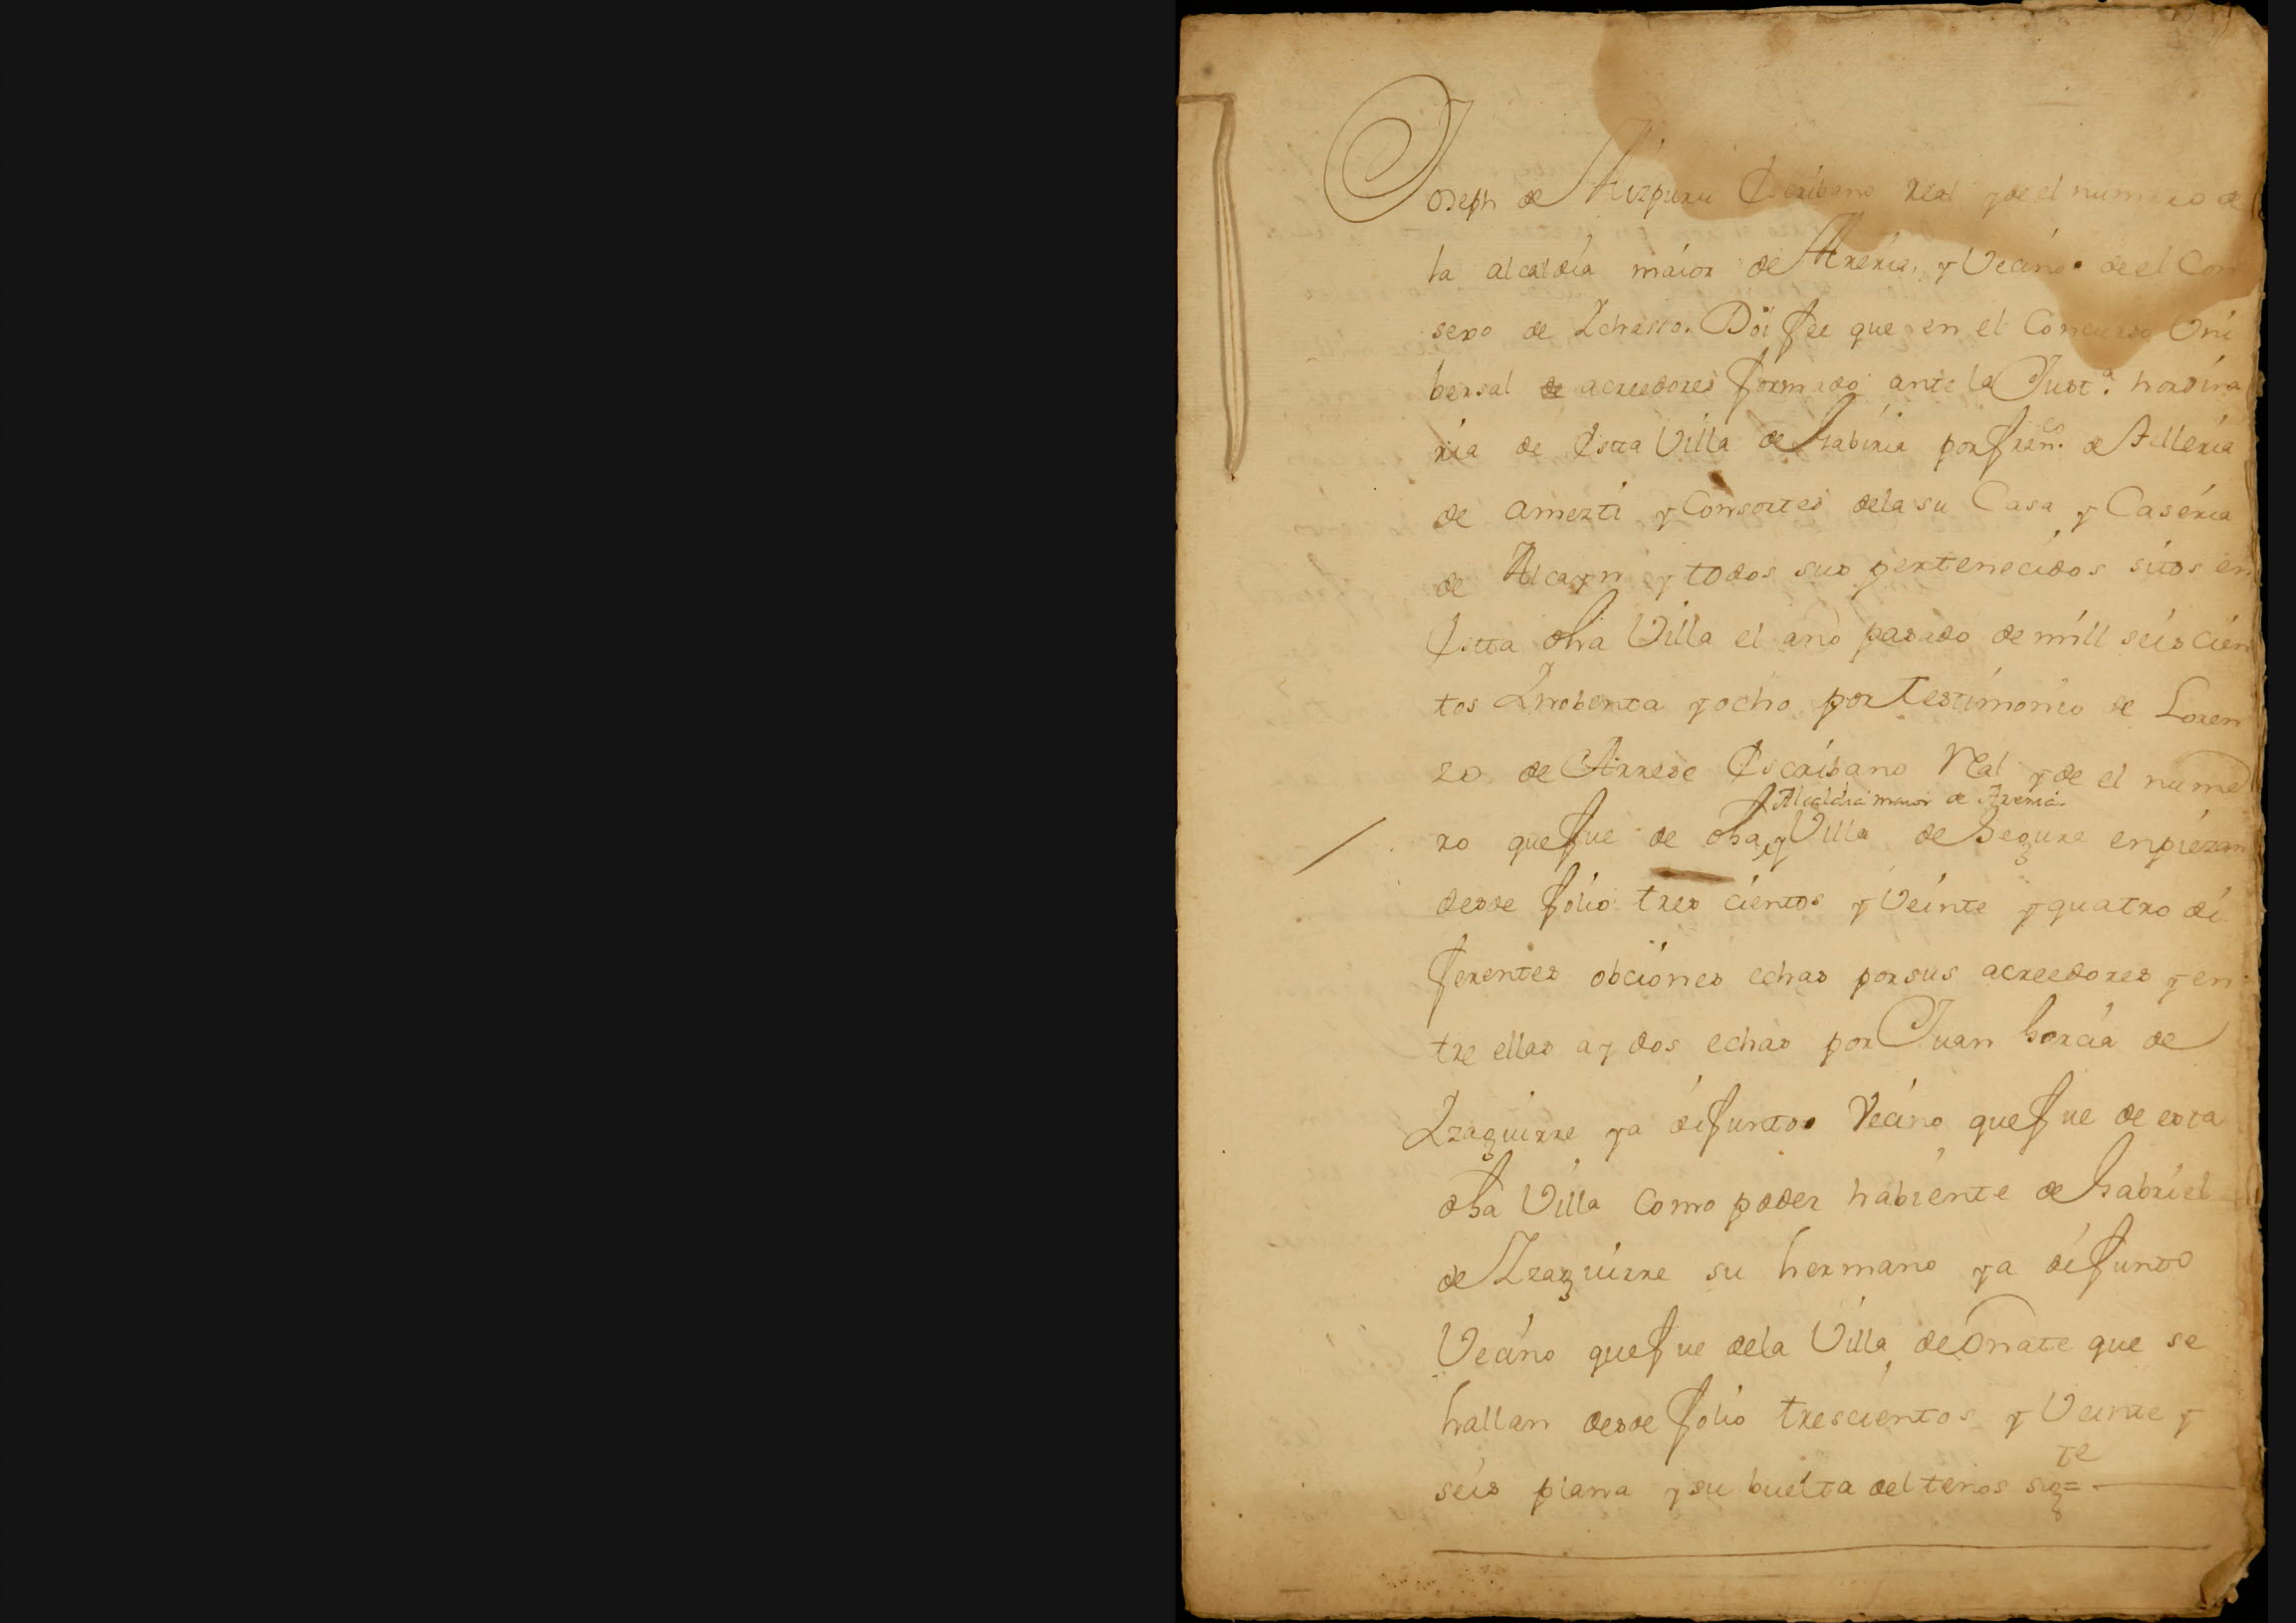 Joseph de Aizpuru Escribano Real y de el numero de
la alcaldia maior de Areria, y Vecino de el Con
sexo de Ichasso. Doi fee que en el Concurso Uni
bersal de acreedores formado ante la Just.ª hordina
ria de Estta Villa de Gabiria por fran.co de Telleria
de Amezti y Consortes dela su Casa y Caseria
de Alcayn y todos sus pertenecidos sitos en
Estta dha Villa el año pasado de mill seis cien
tos y nobenta y ocho por Testimonio de Loren
zo de Arrese Escribano Real y de el nume
Alcaldia maior de Areria
ro que fue de dha y Villa de Segura enpiezan
desde folio tres cientos y Veinte y quatro di
ferentes obciones echas por sus acreedores y en
tre ellas ay dos echas por Juan Garcia de
Yzaguirre ya difunto Vecino que fue de esta
dha Villa Como poder habiente de Gabriel
de Yzaguirre su hermano ya difunto
Vecino que fue dela Villa de Oñate que se
hallan desde folio trescientos y Veinte y
seis plana y su buelta del tenor sig.te =